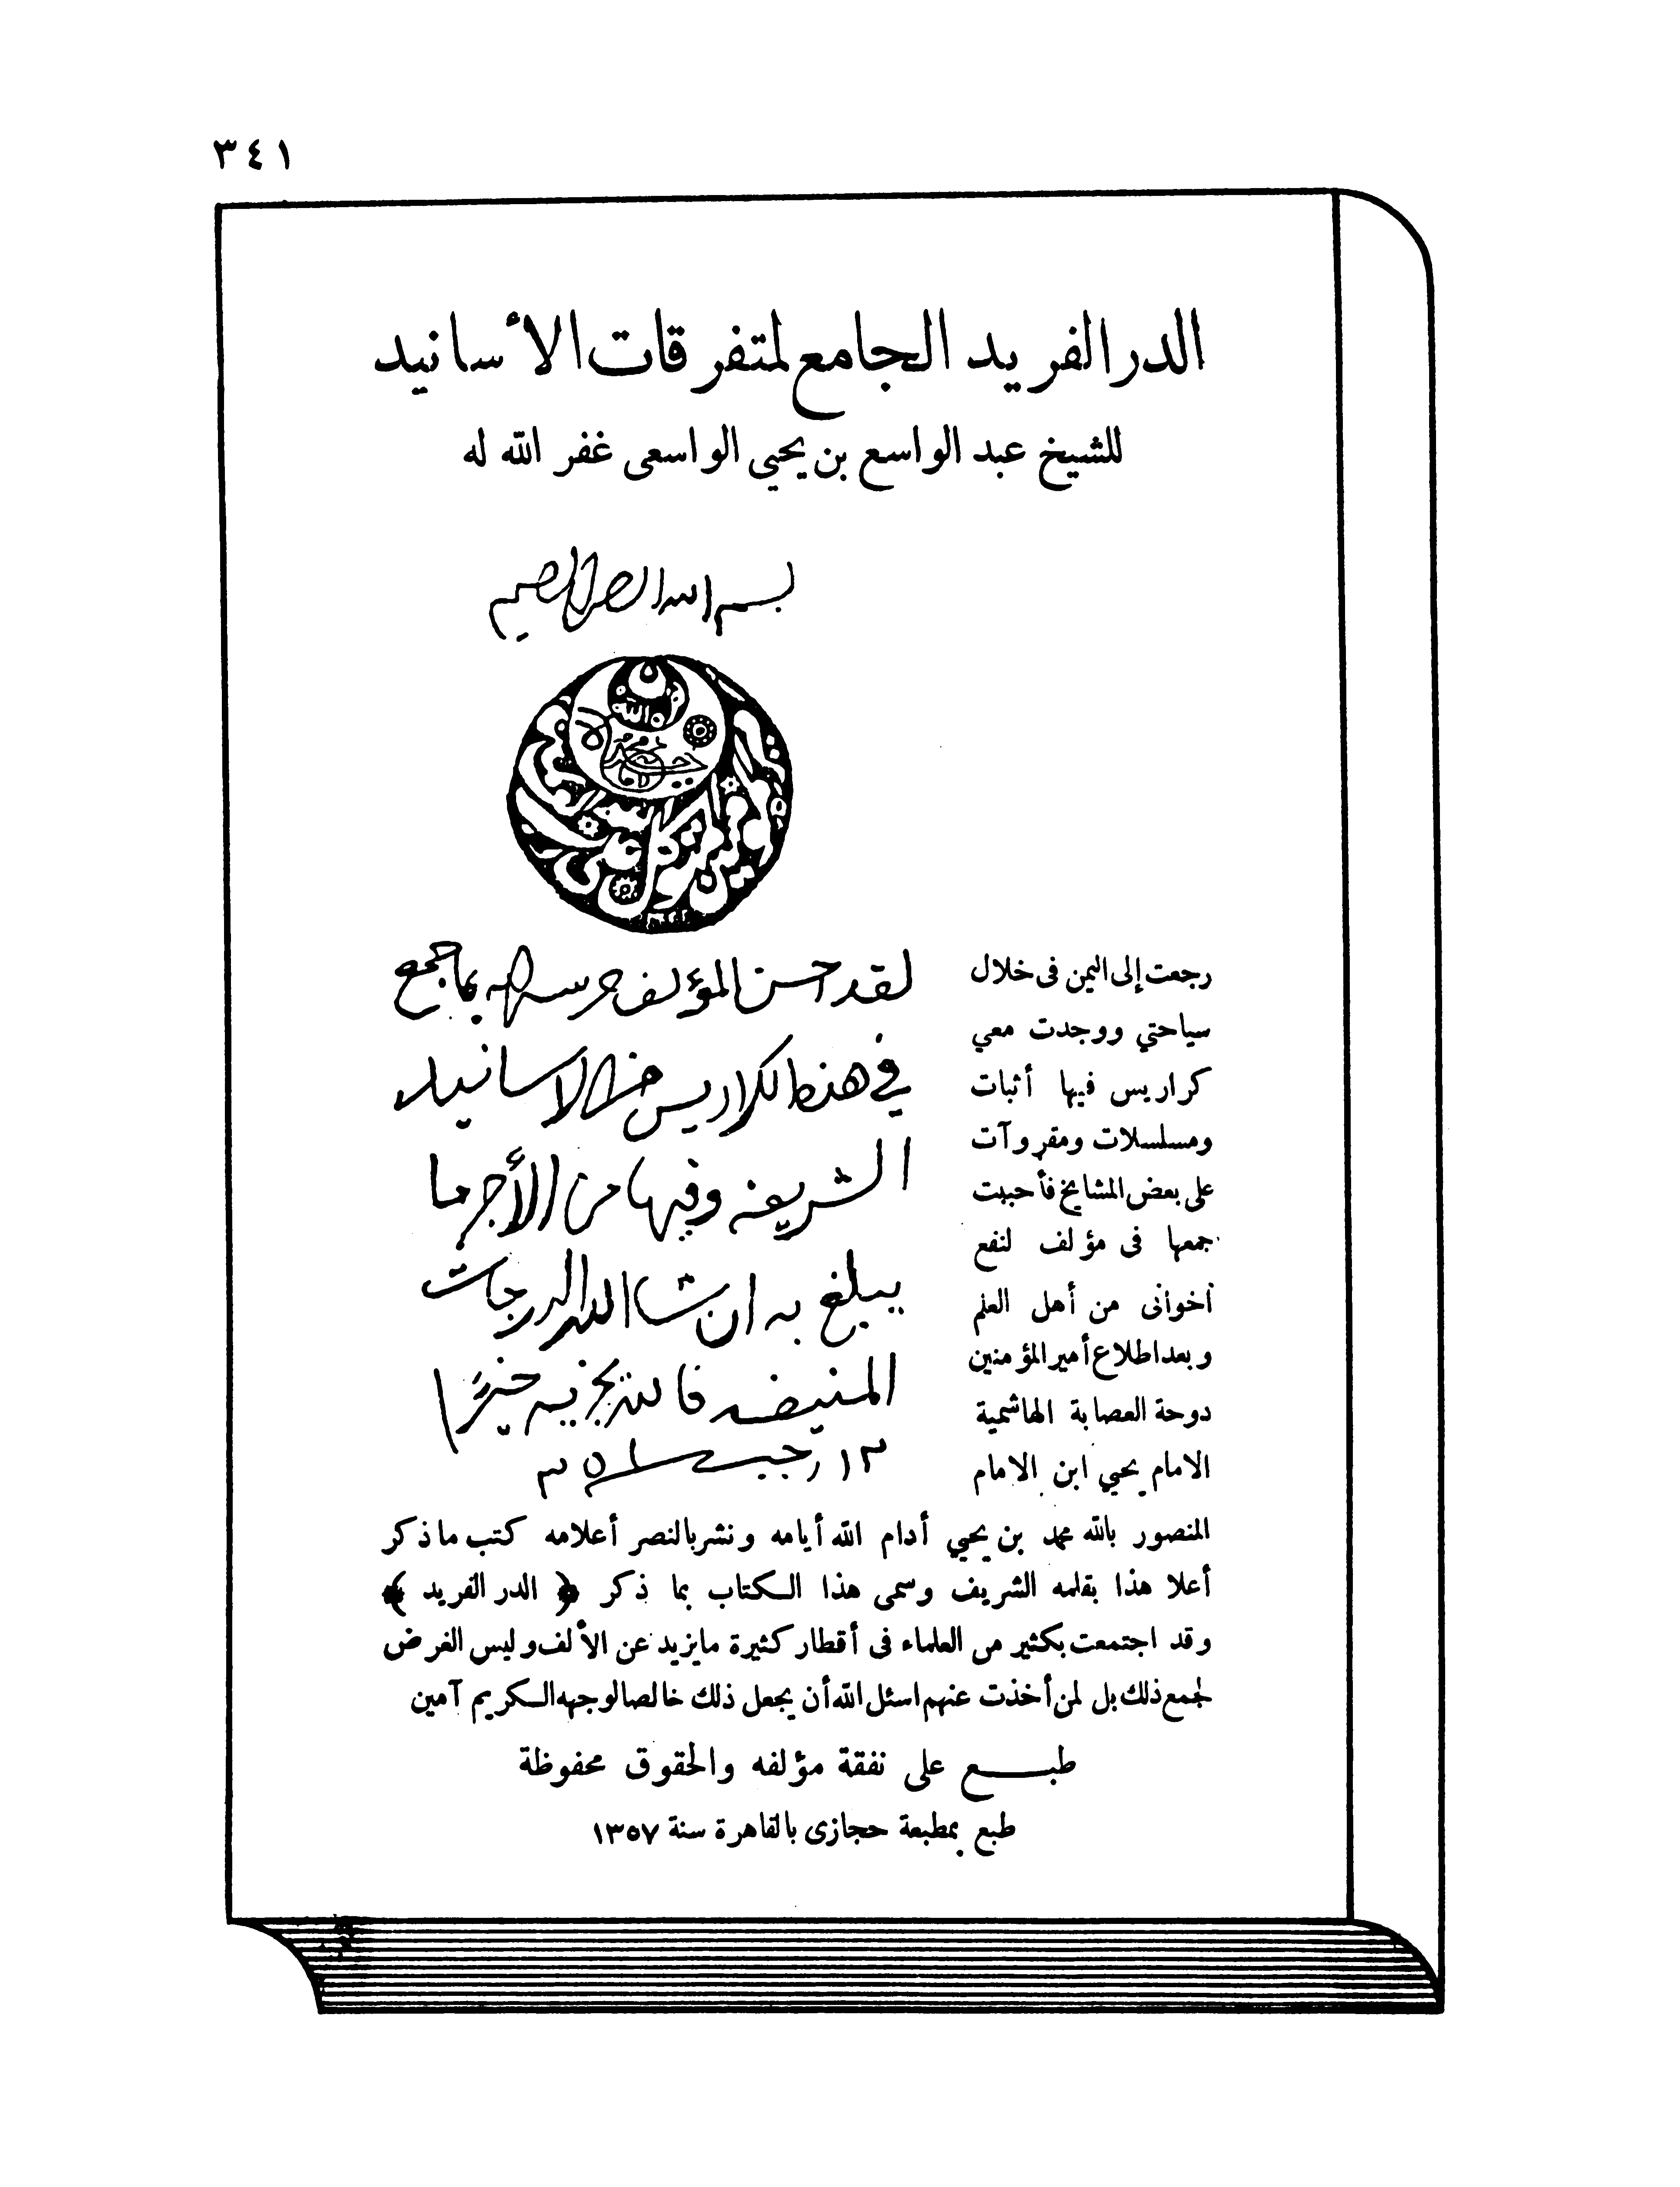 ٣٤١
الدر الفريد الجامع لمتفرقات الأسانيد
للشيخ عبد الواسع بن يحيي الواسعى غفر الله له
بسم الله الرحمن الرحيم
لقد احسن المؤلف حرسه الله بما جمع
في هذه الكراريس من الاسانيد
الشريفه وفيها من الأجر ما
يبلغ به ان شا الله الدرجات
المنيفه فالله يجزيه خيرًا
١٣ رجب سنة ١٣٥١
رجعت إلى اليمن فى خلال
سياحتي ووجدت معي
كراريس فيها أثبات
ومسلسلات ومقروآت
على بعض المشايخ فأحببت
جمعها فى مؤلف لنفع
اخوانى من أهل العلم
وبعد اطلاع أمير المؤمنين
دوحة العصابة الهاشمية
الامام يحيي ابن الامام
المنصور بالله محمد بن يحيي أدام الله أيامه ونشر بالنصر أعلامه كتب ما ذكر
أعلا هذا بقلمه الشريف وسمى هذا الكتاب بما ذكر ﴿ الدر الفريد ﴾
وقد اجتمعت بكثير من العلماء فى أقطار كثيرة ما يزيد عن الألف وليس الغرض
لجمع ذلك بل لمن أخذت عنهم اسئل الله أن يجعل ذلك خالصا لوجهه الكريم آمين
طبع على نفقة مؤلفه والحقوق محفوظة
طبع بمطبعة حجازى بالقاهرة سنة ١٣٥٧